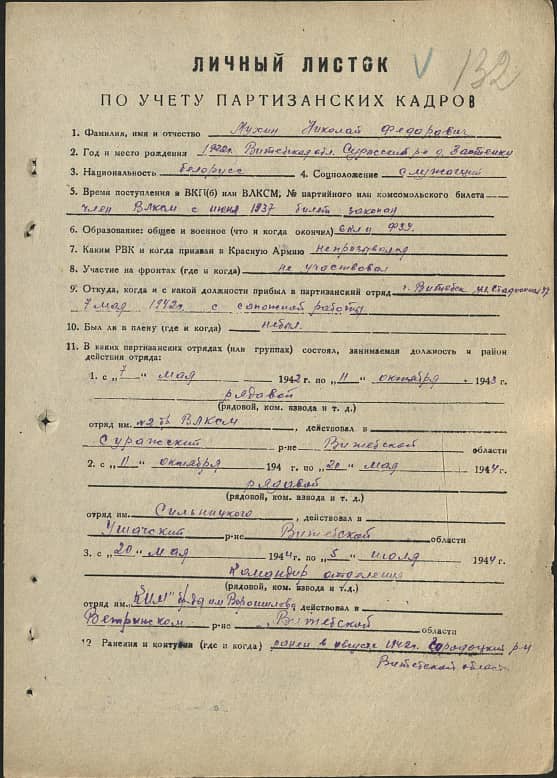 ЛИЧНЫЙ ЛИСТОК
V 132
ПО УЧЕТУ ПАРТИЗАНСКИХ КАДРОВ
1. Фамилия, имя и отчество Мухин Николай Федорович
2. Год и место рождения 1920г. Витебская обл. Суражский р-н д.
3. Национальность белорусс 4. Соцположение служащий
5. Время поступления в ВКП(б) или ВЛКСМ, № партийного или комсомольского билета
член ВЛКСМ с июня 1937 билет закопан
6. Образование: общее и военное (что и когда окончил) 6 кл и ФЗУ.
7. Каким РВК и когда призван в Красную Армию
8. Участие на фронтах (где и когда) не участвовал
9. Откуда, когда и с какой должности прибыл в партизанский отряд г. Витебск
7 мая 1942г. с сапожной работы
10. Был ли в плену (где и когда) небыл.
11. В каких партизанских отрядах (или группах) состоял, занимаемая должность и район
действия отряда:
1. с „7“ мая 1942 г. по „11“ октября 1943 г.
рядавой
(рядовой, ком. взвода и т. д.)
отряд им. ВЛКСМ, действовал в
Суражский р-не Витебской области
2. с „11“ октября 194 г. по „20“ мая 1944 г.
рядавой
(рядовой, ком. взвода и т. д.)
отряд им. Сильницкого, действовал в
Ушачский р-не Витебской области
3. с „20“ мая 1944 г. по „5“ июля 1944 г.
Командир отделения
(рядовой, ком. взвода и т.д.)
отряд им. "КИМ" бр-да им Ворошилова действовал в
Ветрынском р-не Витебской области
12 Ранения и контузии (где и когда) ранен в августе 1942г. Городоцкий р-н
Витебской области